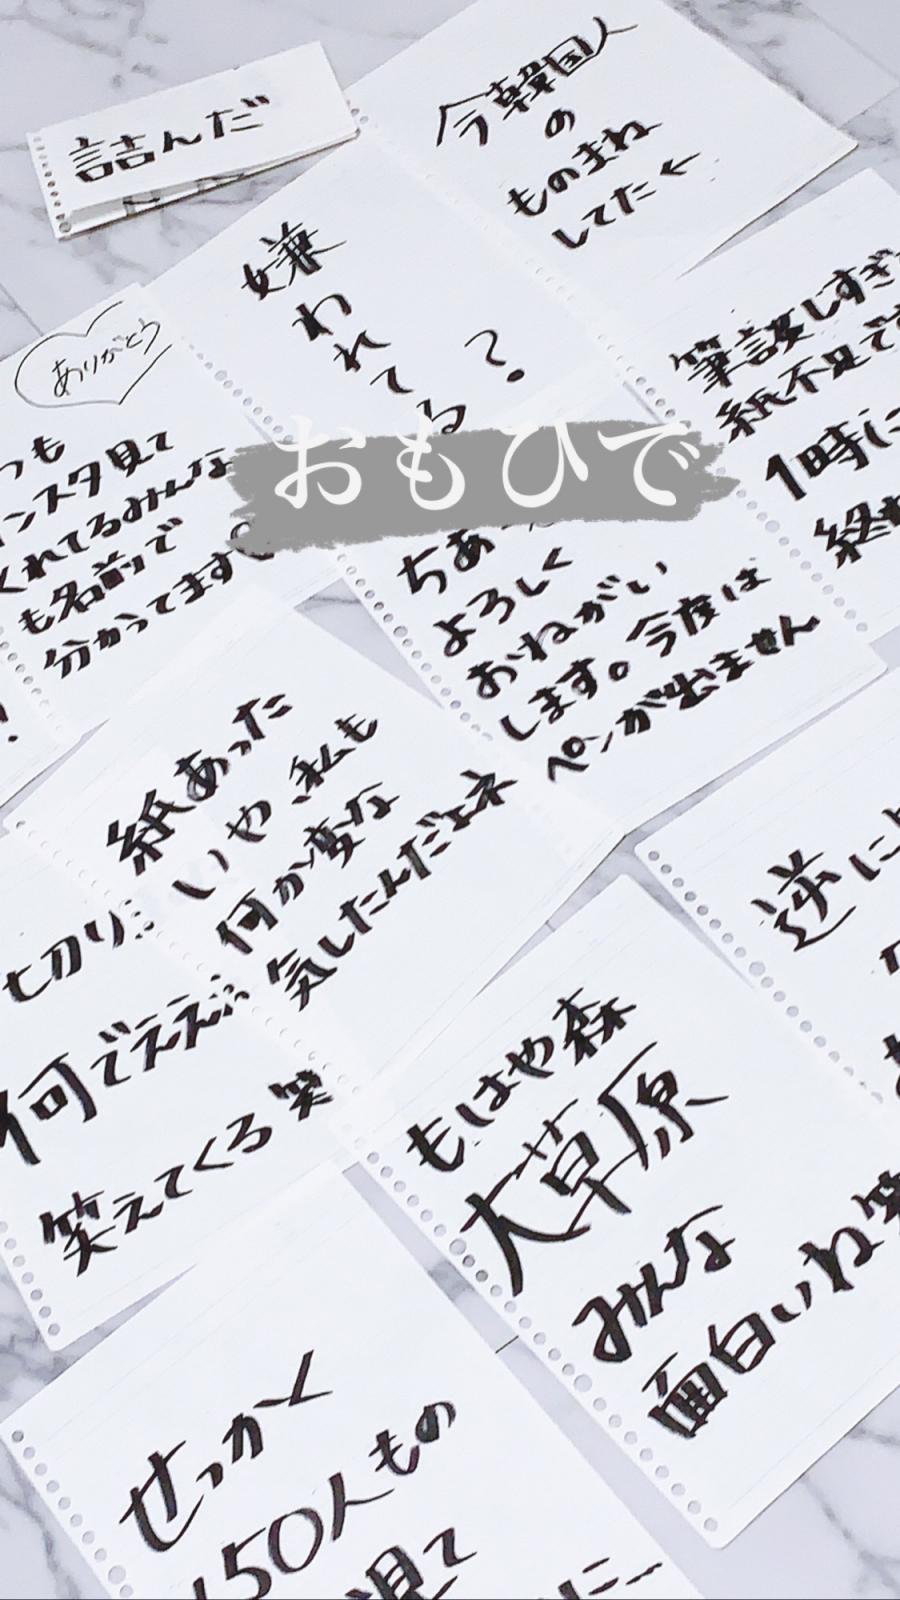 詰んだ
今韓国人
の
ものまね
してた←
嫌われてる?
ありがとう
つも
ンスタ見て
くれてるみんな
も名前で
分かってます
おもひで
筆談しすぎ
紙不足で
1時に
ちあ
よろしく
おねがい
します。今度は
ペンが出ません
紙あった
いや、私も
何か変な
気したんだよネ
七切り
何でええ
笑えてくる笑
逆に
もはや森
大草原
みんな
面白いね笑
せっかく
150人もの
見て
に